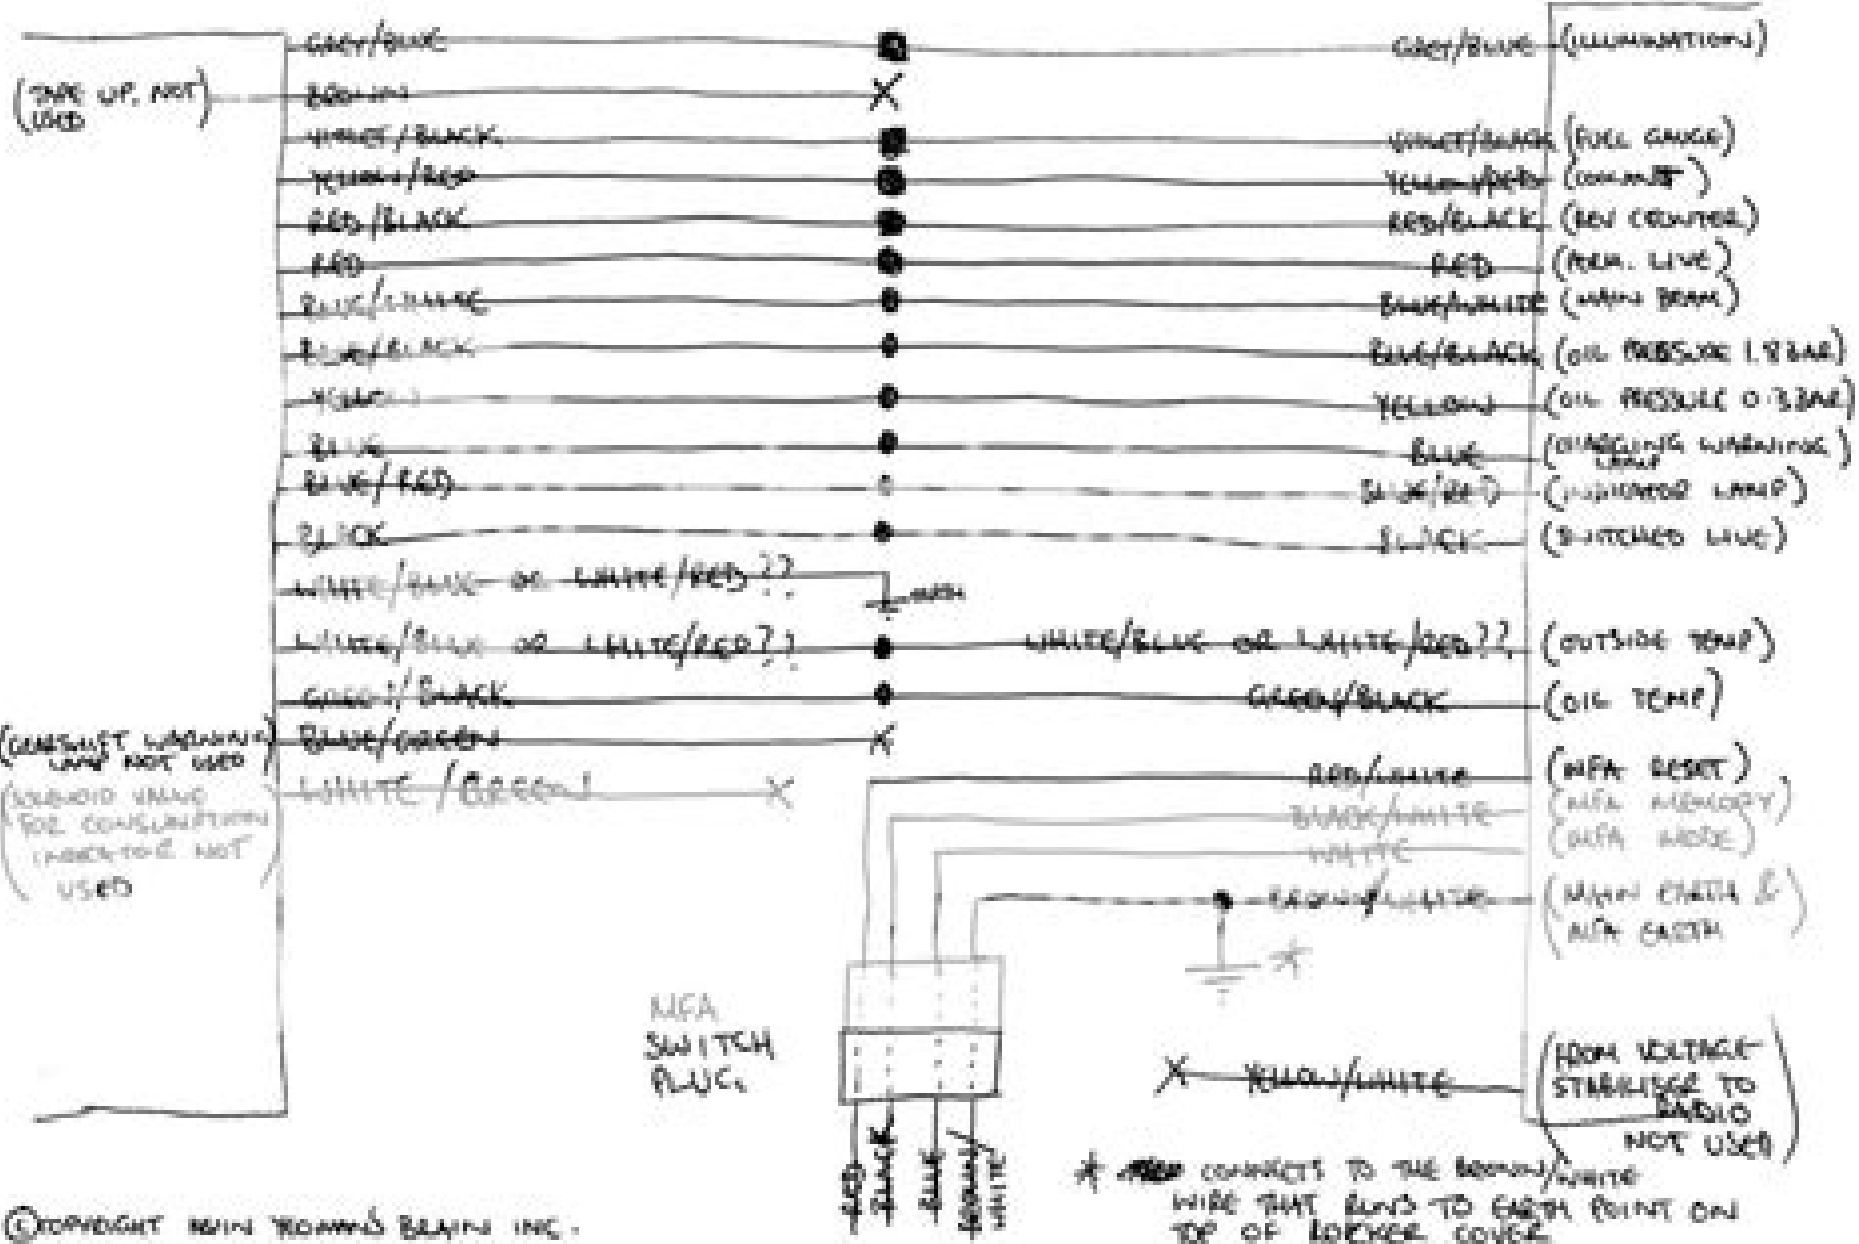 GREY/BLUE GREY/BLUE (ILLUMINATION)
(TAPE UP, NOT USED) BROWN
VIOLET/BLACK VIOLET/BLACK (FUEL GAUGE)
YELLOW/RED YELLOW/RED (COOLANT)
RED/BLACK RED/BLACK (REV COUNTER)
RED RED (PERM. LIVE)
BLUE/WHITE BLUE/WHITE (MAIN BEAM)
BLUE/BLACK BLUE/BLACK (OIL PRESSURE 1.8BAR)
YELLOW YELLOW (OIL PRESSURE 0.3BAR)
BLUE BLUE (CHARGING WARNING LAMP)
BLUE/RED BLUE/RED (INDICATOR LAMP)
BLACK BLACK (SWITCHED LIVE)
WHITE/BLUE OR WHITE/RED?? EARTH
WHITE/BLUE OR WHITE/RED?? WHITE/BLUE OR WHITE/RED?? (OUTSIDE TEMP)
GREEN/BLACK GREEN/BLACK (OIL TEMP)
(GEARSHIFT WARNING LAMP NOT USED) BLUE/GREEN
(SOLENOID VALVE
FOR CONSUMPTION
INDICATOR NOT
USED)
WHITE/GREEN
RED/WHITE (MFA RESET)
BLACK/WHITE (MFA MEMORY)
WHITE (MFA MODE)
BROWN/WHITE (MAIN EARTH &
MFA EARTH)
*
MFA
SWITCH
PLUG.
RED
BLACK
BLUE
BROWN/
WHITE
YELLOW/WHITE
(FROM VOLTAGE
STABILISER TO
RADIO
NOT USED)
* CONNECTS TO THE BROWN/WHITE
WIRE THAT RUNS TO EARTH POINT ON
TOP OF ROCKER COVER
© COPYRIGHT BRAIN INC.